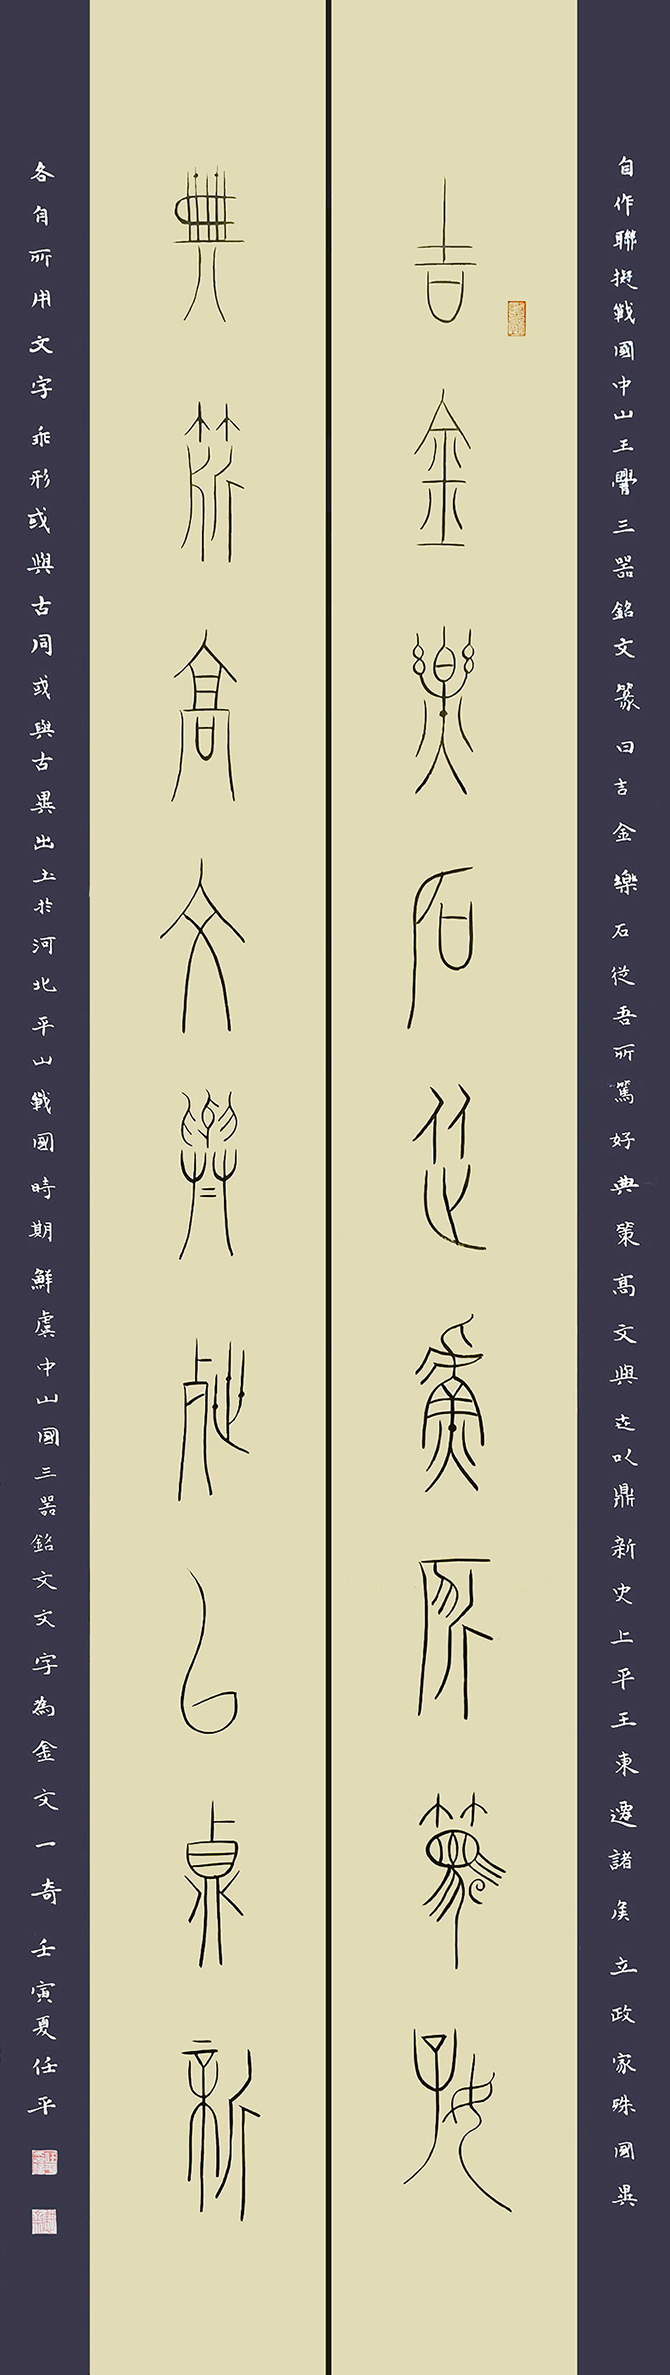 自作聯擬戰國中山王三器銘文篆曰吉金樂石從吾所篤好典策高文與世以鼎新史上平王東遷諸侯立政家殊國異
吉金樂石從吾所篤好
典策高文與世以鼎新
各自所用文字乖形或與古同或與古異出土於河北平山戰國時期鮮虞中山國三器銘文文字為金文一奇壬寅夏任平